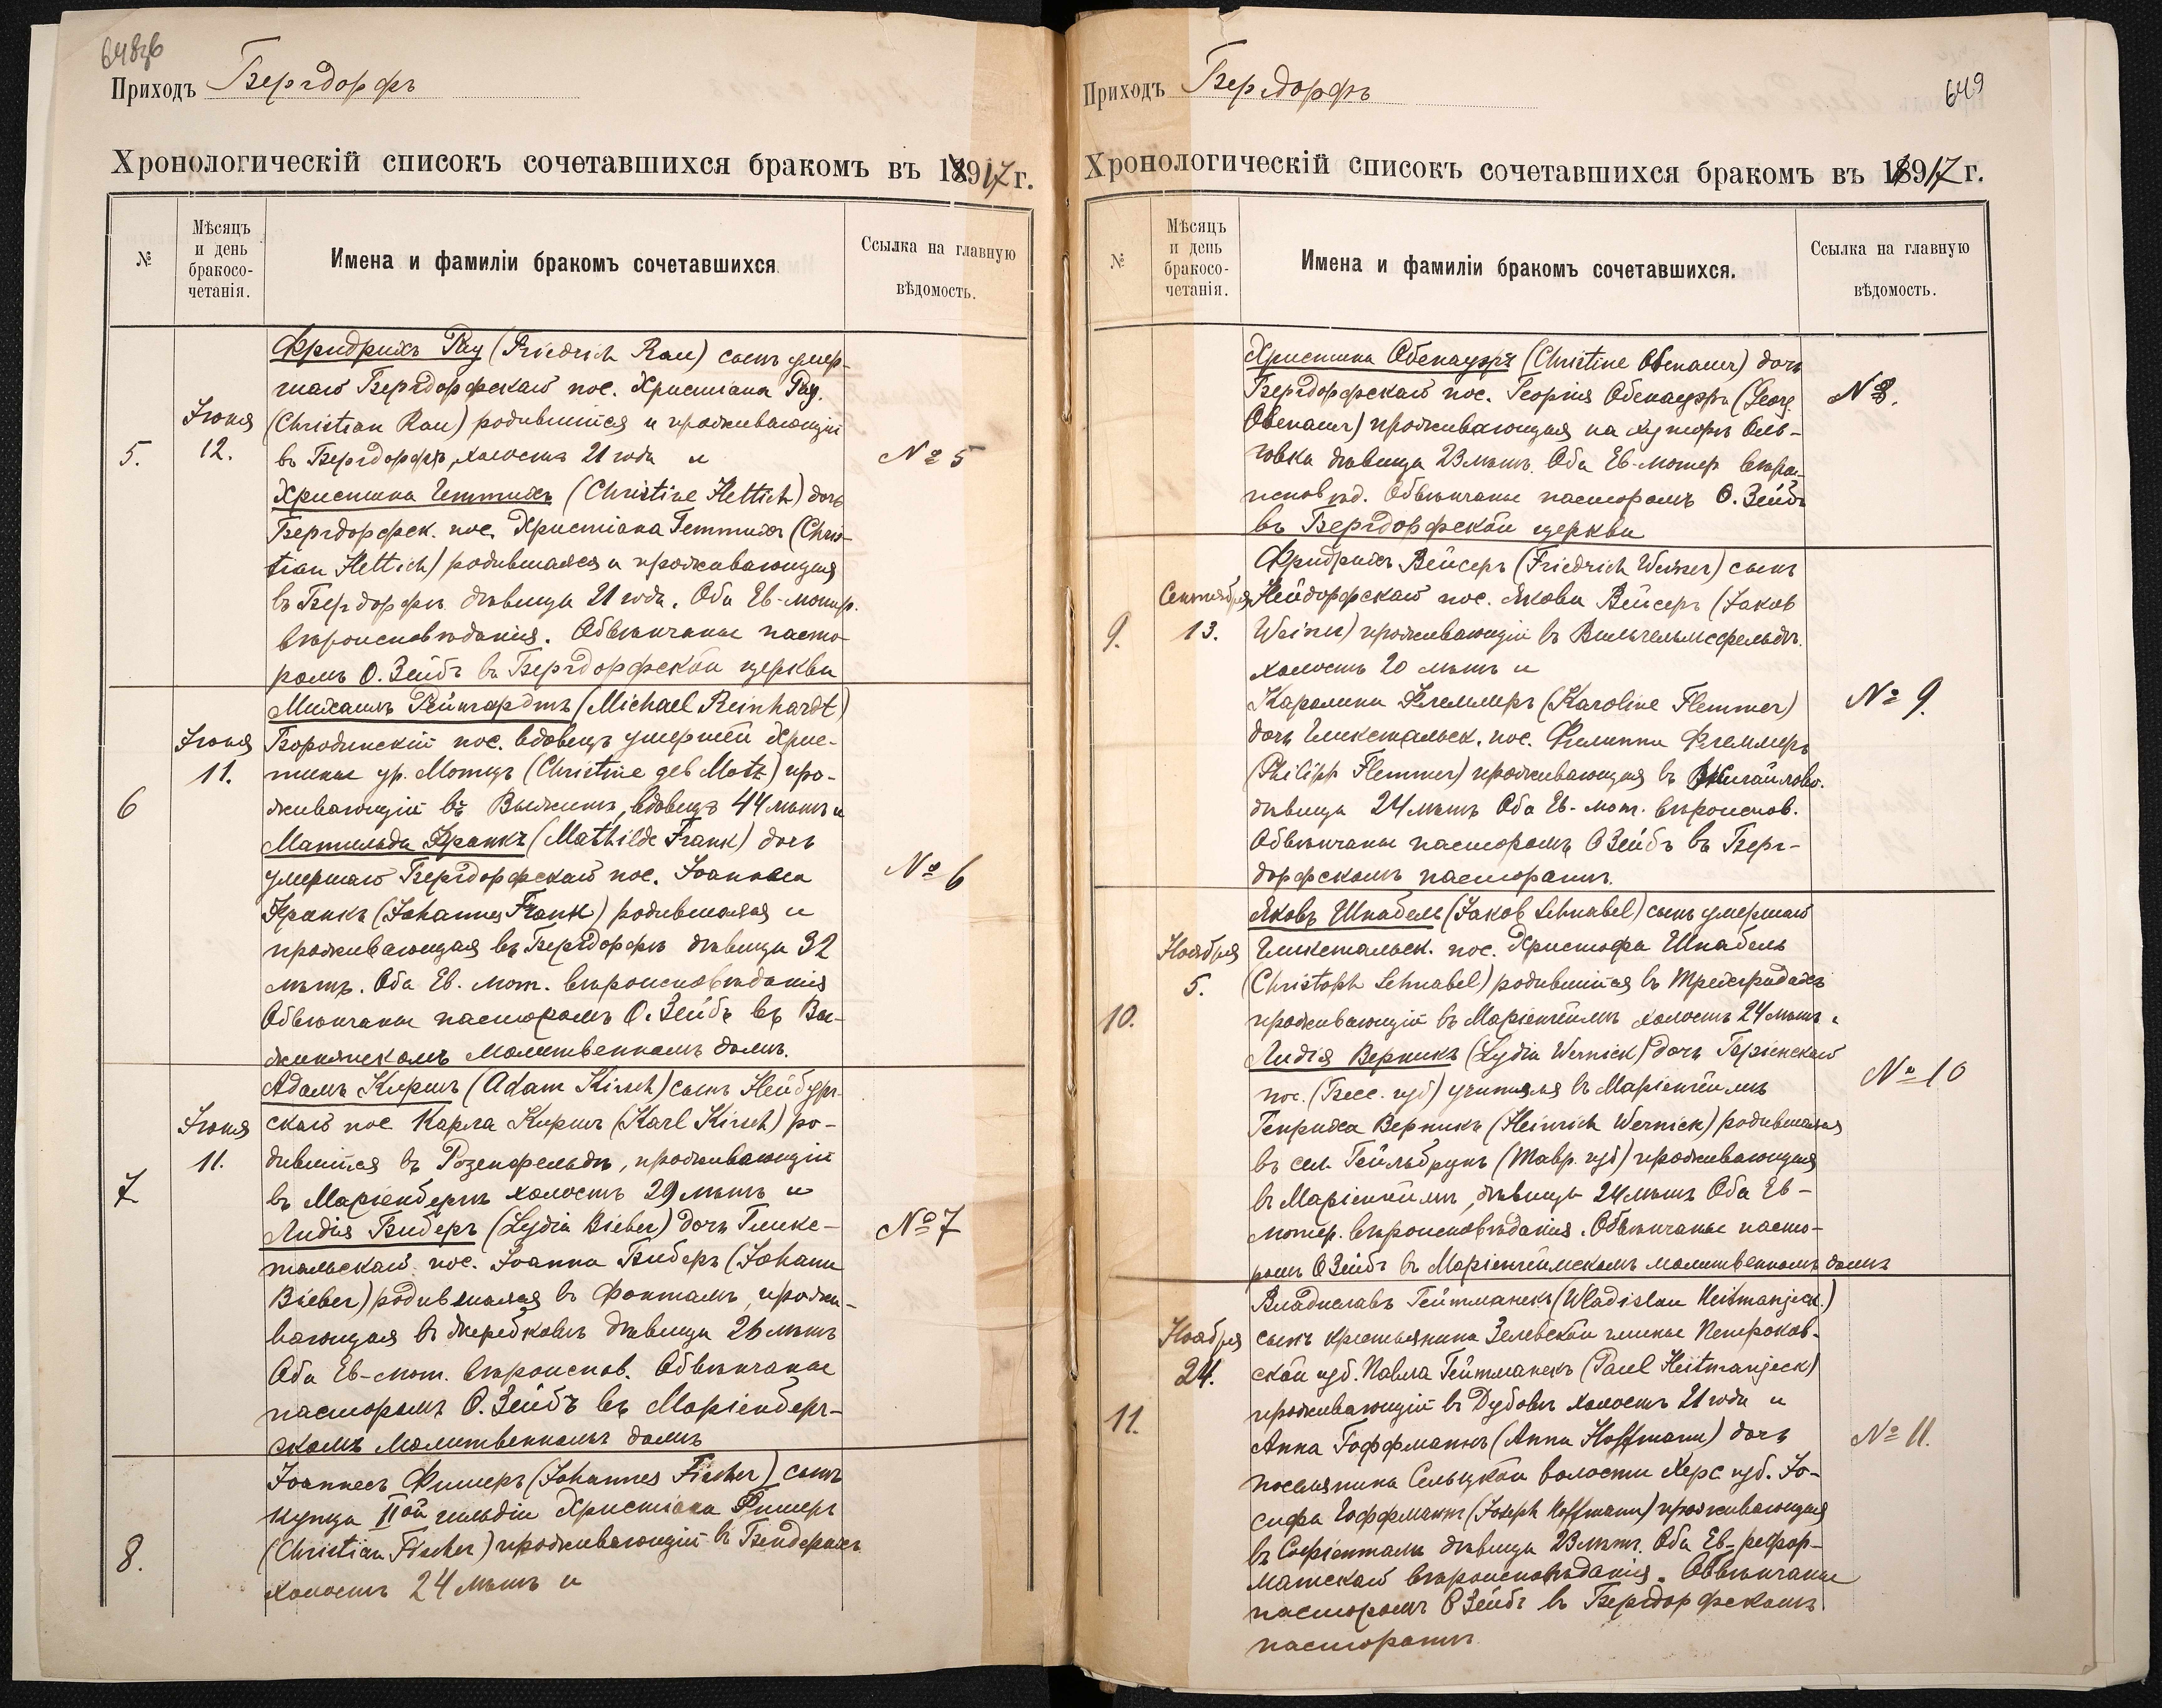 648об
Приходъ Бергдорфъ
Хронологическій списокъ сочетавшихся бракомъ въ 1917 г.
№
Мѣсяцъ
и день
бракосо-
четанія.
Имена и фамиліи бракомъ сочетавшихся
Ссылка на главную
вѣдомость.
5.
Іюня
12.
Фридрихъ Рау (Friedrich Rau) сынъ умер-
шаго Бергдорфскаго пос. Христіана Рау.
(Christian Rau) родившійся и проживающій
въ Бергдорфѣ, холостъ 21 года и
Христина Геттихъ (Christine Hettich) дочь
Бергдорфск. пос. Христіана Геттихъ (Chris-
tian Hettich) родившаяся и проживающая
въ Бергдорфѣ дѣвица 21 года. Оба Ев-лютер.
вѣроисповѣданія. Обвѣнчаны пасто-
ромъ О. Зейбъ въ Бергдорфской церкви
№ 5
6
Іюня
11.
Михаилъ Рейнгардтъ (Michael Reinhardt)
Бородинскій пос. вдовецъ умершей Хрис-
тины ур. Мотцъ (Christine geb Motz) про-
живающій въ Выжинѣ, вдовецъ 44 лѣтъ и
Матильда Франкъ (Mathilde Frank) дочь
умершаго Бергдорфскаго пос. Іоаннеса
Франкъ (Johannes Frank) родившаяся и
проживающая въ Бергдорфѣ дѣвица 32
лѣтъ. Оба Ев. лют. вѣроисповѣданія
Обвѣнчаны пасторомъ О. Зейбъ въ Вы-
жинянскомъ молитвенномъ домѣ.
№ 6
7
Іюня
11.
Адамъ Киршъ (Adam Kirsch) сынъ Нейбург-
скаго пос Карла Киршъ (Karl Kirsch) ро-
дившійся въ Розенфельдѣ, проживающій
въ Маріенбергѣ холостъ 29 лѣтъ и
Лидія Биберъ (Lydia Bieber) дочь Глюкс-
тальскаго пос. Іоанна Биберъ (Johann
Bieber) родившаяся въ Фонталѣ, прожи-
вающая въ Жеребковѣ дѣвица 26 лѣтъ
Оба Ев-лют. вѣроиспов. Обвѣнчаны
пасторомъ О. Зейбъ въ Маріенберг-
скомъ молитвенномъ домѣ
№ 7
8.
Іоаннесъ Фишеръ (Johannes Fischer) сынъ
купца IIой гильдіи Христіана Фишеръ
(Christian Fischer) проживающій въ Бендерахъ
холостъ 24 лѣтъ и
649
Приходъ Бергдорфъ
Хронологическій списокъ сочетавшихся бракомъ въ 1917 г.
№
Мѣсяцъ
и день
бракосо-
четанія.
Имена и фамиліи бракомъ сочетавшихся.
Ссылка на главную
вѣдомость.
Христина Обенауэръ (Christine Obenauer) дочь
Бергдорфскаго пос. Георгія Обенауэръ (Georg
Obenauer) проживающая на хуторѣ Оль-
говка дѣвица 23 лѣтъ. Оба Ев-лютер вѣро-
исповѣд. Обвѣнчаны пасторомъ О. Зейбъ
въ Бергдорфской церкви
№ 8.
9.
Сентября
13.
Фридрихъ Вейсеръ (Friedrich Weisser) сынъ
Нейдорфскаго пос. Якова Вейсеръ (Jakob
Weisser) проживающій въ Вильгельмсфельдѣ.
холостъ 20 лѣтъ и
Каролина Флеммеръ (Karoline Flemmer)
дочь Глюкстальск. пос. Филиппа Флеммеръ
(Philipp Flemmer) проживающая въ Михайлово.
дѣвица 24 лѣтъ Оба Ев-лют. вѣроиспов.
Обвѣнчаны пасторомъ О Зейбъ въ Берг-
дорфскомъ пасторатѣ.
№ 9.
10.
Ноября
5.
Яковъ Шнабель (Jakob Schnabel) сынъ умершаго
Глюкстальск. пос. Христофа Шнабель
(Christoph Schnabel) родившійся въ Трейсградахъ
проживающій въ Маріенгеймѣ холостъ 24 лѣтъ и
Лидія Верникъ (Lydia Wernick) дочь
пос. (Бесс. губ) учителя въ Маріенгеймѣ
Генриха Верникъ (Heinrich Wernick) родившаяся
въ сел. Гейльбрунъ (Тавр. губ) проживающая
въ Маріенгеймѣ, дѣвица 24 лѣтъ Оба Ев-
лютер. вѣроисповѣданія. Обвѣнчаны пасто-
ромъ О Зейбъ въ Маріенгеймскомъ молитвенномъ домѣ
№ 10
11.
Ноября
24.
Владиславъ Гейтманекъ (Wladislau Heitmanjeck)
сынъ крестьянина Зелевской гмины Петроков-
ской губ. Павла Гейтманекъ (Paul Heitmanjeck)
проживающій въ Дубовѣ холостъ 21 года и
Анна Гоффманнъ (Anna Hoffmann) дочь
поселянина Сельцкой волости Херс губ. Іо-
сифа Гоффманнъ (Joseph Hoffmann) проживающая
въ Софіенталѣ дѣвица 23 лѣтъ. Оба Ев-рефор-
матскаго вѣроисповѣданія. Обвѣнчаны
пасторомъ О Зейбъ въ Бергдорфскомъ
пасторатѣ
№ 11.